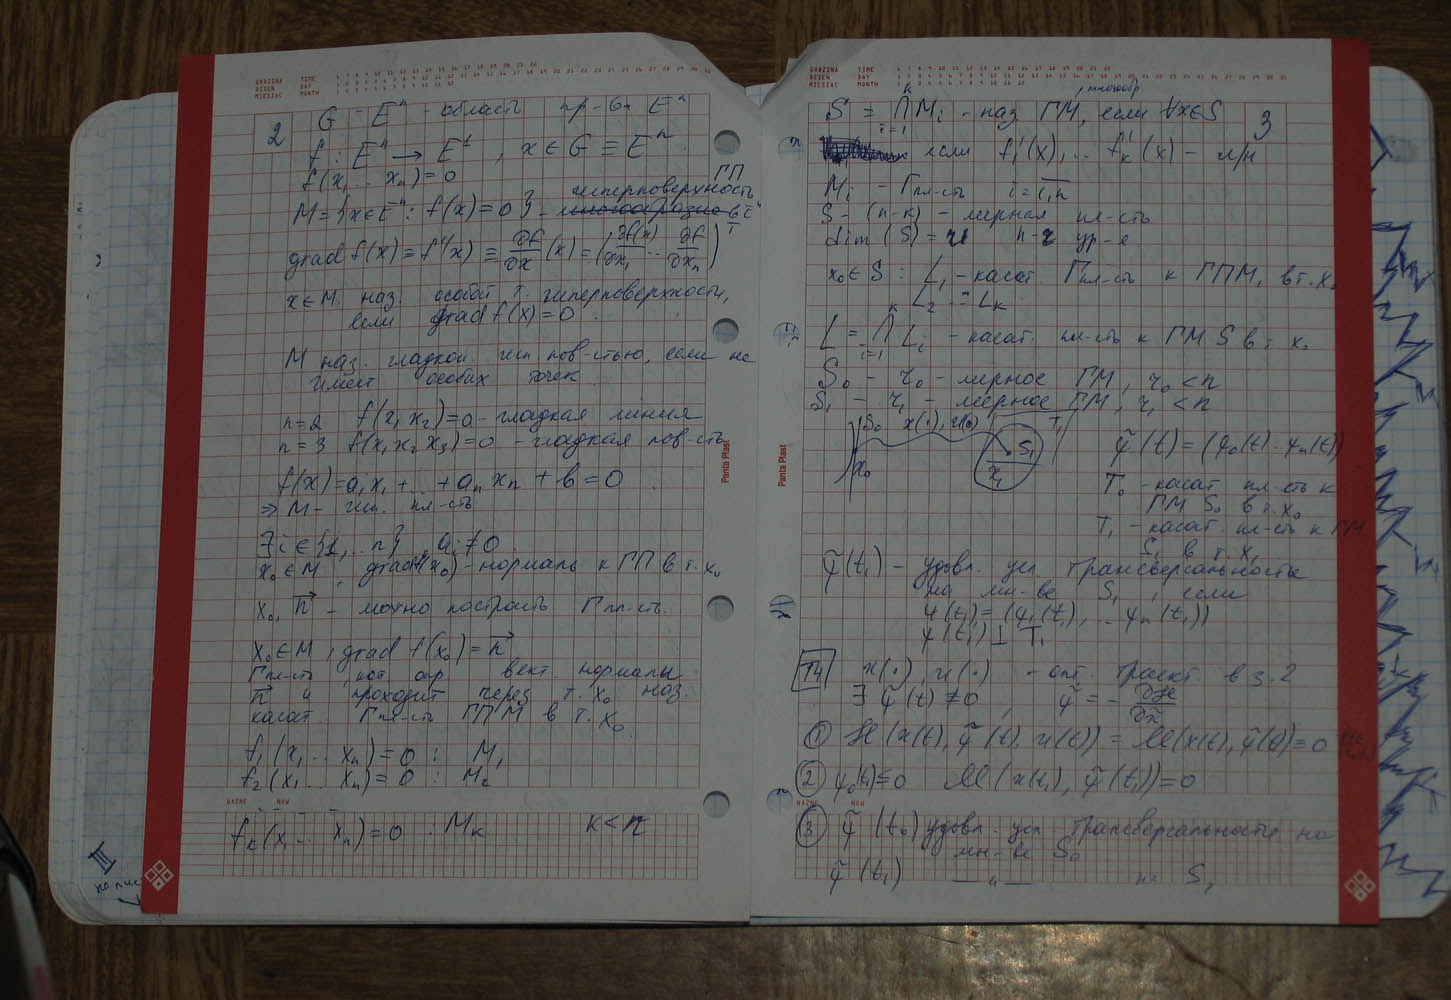 GODZINA TIME
DZIEŃ DAY
MIESIĄC MONTH
2
G - Eⁿ - область пр-ва Eⁿ
f: Eⁿ → E¹, x ∈ G ≡ Eⁿ
f(x₁ ... xₙ) = 0
ГП
гиперповерхность
M = {x ∈ Eⁿ: f(x) = 0} - многообразие в Eⁿ
grad f(x) = f'(x) ≡ ∂f/∂x (x) = (∂f(x)/∂x₁ ... ∂f/∂xₙ)
x ∈ M наз. особой т. гиперповерхности,
если grad f(x) = 0.
M наз. гладкой гип. пов-стью, если не
имеет особых точек
n=2 f(x₁x₂)=0 - гладкая линия
n=3 f(x₁x₂x₃)=0 - гладкая пов-сть
f(x) = a₁x₁ + ... + aₙxₙ + b = 0
⇒ M - гип. пл-сть
∃ i ∈ {1,...n}, aᵢ ≠ 0
x₀ ∈ M, grad f(x₀) - нормаль к ГП в т. x₀
x₀, n⃗ - можно построить Гпл-сть.
x₀ ∈ M, grad f(x₀) = n⃗
Гпл-сть вект. нормалы
n⃗ и проходит через т. x₀ наз.
касат. Гпл-сть ГП M в т. x₀
f₁(x₁ ... xₙ) = 0 : M₁
f₂(x₁ ... xₙ) = 0 : M₂
WAŻNE NOW
fₖ(x₁ ... xₙ) = 0 : Mₖ k < n
III
Panta Plast
GODZINA TIME
DZIEŃ DAY
MIESIĄC MONTH
3
многообр.
S = ⋂ᵢ₌₁ᵏ Mᵢ - наз ГМ, если ∀x∈S
если f₁'(x), ... fₖ'(x) - л/н
Mᵢ - Гпл-сть i = 1,n
S - (n-k) - мерная пл-сть
dim (S) = r n-r ур-е
x₀ ∈ S : L₁ - касат. Гпл-сть к ГП M₁ в т. x₀
L₂ ... Lₖ
L = ⋂ᵢ₌₁ᵏ Lᵢ - касат. пл-сть к ГМ S в т. x₀
S₀ - r₀ - мерное ГМ, r₀ < n
S₁ - r₁ - мерное ГМ, r₁ < n
S₀ x(·), u(·) T₁
S₁
x₀ x₁
ψ̃(t) = (ψ₀(t) ... ψₙ(t))
T₀ - касат. пл-сть к
ГМ S₀ в т. x₀
T₁ - касат. пл-сть к ГМ
S₁ в т. x₁
ψ̃(t₁) - удовл. усл. трансверсальности
на мн-ве S₁, если
ψ(t₁) = (ψ₁(t₁), ... ψₙ(t₁))
ψ(t₁) ⊥ T₁
T4 x(·), u(·) - опт. траект в з. 2
∃ ψ̃(t) ≠ 0, ψ̃ = - ∂ℋ/∂x̃
① ℋ(x(t), ψ̃(t), u(t)) = ℳ(x(t), ψ̃(t)) = 0
② ψ₀(t₁) ≤ 0 ℳ(x(t₁), ψ̃(t₁)) = 0
WAŻNE NOW
③ ψ̃(t₀) удовл. усл. трансверсальности на
мн-ве S₀
ψ̃(t₁) —〃— на S₁
Panta Plast